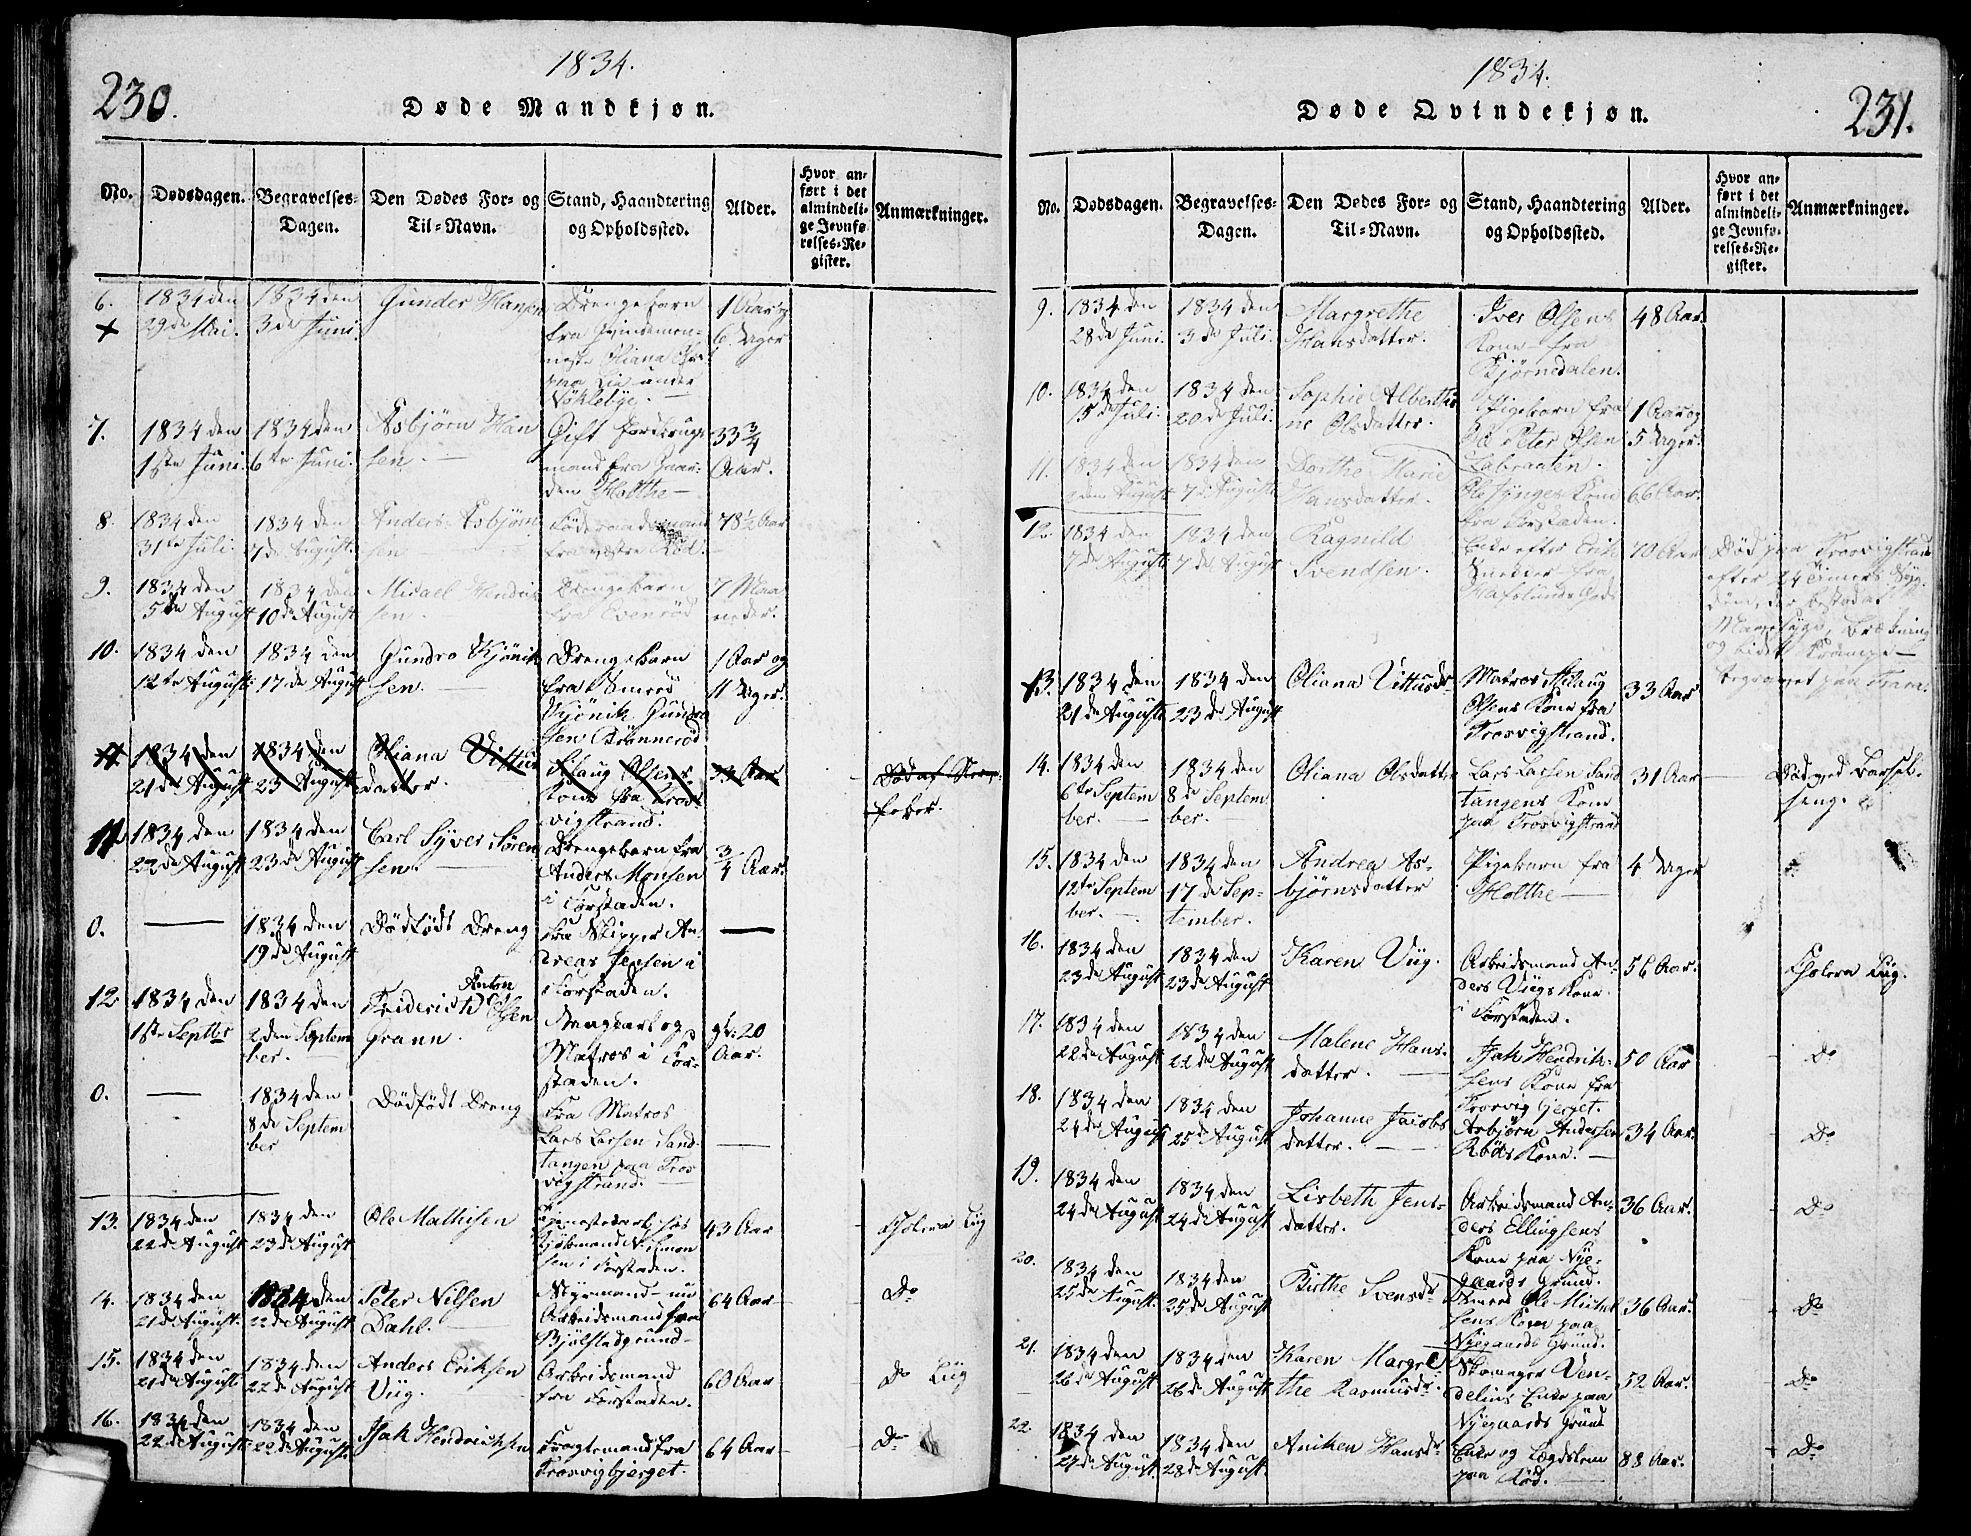 230.
1834.
Døde Mandkjøn.
No.
Dødsdagen.
Begravelses-
Dagen.
Den Dødes For- og
Til-Navn.
Stand, Haandtering
og Opholdssted.
Alder.
Hvor an-
ført i det
almindeli-
ge Jevnfø-
relses-Re-
gister.
Anmærkninger.
6.
1834 den
29de Mai.
1834 den
3de Juni.
Gunder Hansen
Drengebarn
fra
Oliana
paa Lie under
Nøklebye.
1 Aar og
6 Dager
7.
1834 den
1ste Juni.
1834 den
6te Juni.
Asbjørn Han
sen.
Gift
mand fra Gaar-
den Holthe
33 3/4
Aar.
8.
1834 den
31te Juli.
1834 den
7de August.
Anders Asbjørn
sen
Föderaadsmand
fra vestre Röd.
78 1/2 Aar
9.
1834 den
5te August
1834 den
10de August
Micael Hendrik
sen.
Drengebarn
fra Evenröd
7 Maa
neder.
10.
1834 den
12te August
1834 den
17de August
Gundro Kjönik
sen.
Drengebarn
fra Smeröd
Kjönik Gundro
sen Brönneröd
1 Aar og
11 Dager.
11
1834 den
21de August
1834 den
23 August
Oliana Vittus
datter.
Aslaug Olsens
Kone fra Tros-
vigstrand.
33 Aar
Död af
11.
1834 den
22de August
1834 den
23de August
Carl Syver Sören
sen.
Drengebarn fra
Anders Monsen
i Forstaden.
3/4 Aar.
0.
1834 den
19de August
Dödfödt Dreng
Fra Skipper An-
dreas Jensen i
Forstaden.
12
1834 den
1ste Septbr
1834 den
2den Septem
ber.
Anton
Friderich Olsen
Grann.
Ungkarl og
Matros i For-
staden.
20
Aar.
0.
1834 den
8de Septem
ber
Dödfödt Dreng
Fra Matros
Lars Larsen Sand-
tangen paa Tros-
vigstrand.
13.
1834 den
22de August
1834 den
23de August
Ole Mathisen
sen i Forstaden.
43 Aar
Cholera Liig
14.
1834 den
21de August.
1834 den
22de August
Peter Nilsen
Dahl.
Styrmand nu
Arbeidsmand fra
Bjölstadgrund
64 Aar
Do
15.
1834 den
21de August
1834 den
22de August
Anders Eriksen
Viig.
Arbeidsmand
fra Forstaden.
60 Aar
Do Liig
16.
1834 den
22de August
1834 den
22de August
Jak Hendrichsen
Fragtemand fra
Trosvigbjerget.
64 Aar
Do
1834.
231.
Døde Qvindekjøn.
No.
Dødsdagen.
Begravelses-
Dagen.
Den Dødes For- og
Til-Navn.
Stand, Haandtering
og Opholdssted.
Alder.
Hvor an-
ført i det
almindeli-
ge Jevnfø-
relses-Re-
gister.
Anmærkninger.
9.
1834 den
28de Juni.
1834 den
3de Juli.
Margrethe
Hansdatter.
Iver Olsens
Kone fra
Bjørnedalen.
48 Aar.
10.
1834 den
15de Juli.
1834 den
20de Juli.
Sophie Alberthi
ne Olsdatter.
Pigebarn fra
Peter Olsen
Labraaten.
1 Aar og
5 Dager.
11.
1834 den
2den August
1834 den
7de August
Dorthe Marie
Hansdatter.
Ole Kone
fra Forstaden.
66 Aar.
12.
1834 den
7de August
1834 den
7de August
Ragnild
Svendsen.
Enke efter Erik
fra
Hafslunds Gods
70 Aar
Död paa Trosvigstrand
efter 24 Timers Syg-
dom, der bestod af
Brækning
og Krampe
begravet paa
13.
1834 den
21de August
1834 den
23de August
Oliana Vittusdr
Matros Aslaug
Olsens Kone fra
Trosvigstrand.
33 Aar
14.
1834 den
6te Septem
ber.
1834 den
8de Septem
ber.
Oliana Olsdatter
Lars Larsen Sand
tangens Kone
paa Trosvigstrand
31 Aar
Död ved Barsel-
seng.
15.
1834 den
12te Septem
ber.
1834 den
17de Sep-
tember.
Andrea As-
björnsdatter
Pigebarn fra
Holthe
4 Dager
16.
1834 den
23de August
1834 den
23de August
Karen Viig.
Arbeidsmand An-
ders Viigs Kone
i Forstaden.
56 Aar.
Cholera Liig.
17.
1834 den
22de August
1834 den
22de August
Malene Hans-
datter.
Jak Hendrik-
sens Kone fra
Trosvigbjerget.
50 Aar
Do
18.
1834 den
24de August
1834 den
25de August
Johanne Jacobs
datter.
Asbjörn Andersen
Röds Kone.
34 Aar.
Do
19.
1834 den
24de August
1834 den
24de August
Lisbeth Jens-
datter.
Arbeidsmand An-
ders Ellingsens
Kone paa Nye-
gaards Grund.
36 Aar.
Do
20.
1834 den
25de August.
1834 den
25de August
Birthe Svensdr
Ole Mickel
sens Kone paa
Nyegaards Grund.
36 Aar.
Do
21.
1834 den
26de August
1834 den
26de August
Karen Margre
the Rasmusdr.
Skomager Ven-
delius Enke paa
Nyegaards Grund
52 Aar.
Do
22
1834 den
27de August
1834 den
28de August.
Aniken Hansdr
Enke og Lægdslem
paa Röd.
88 Aar.
Do